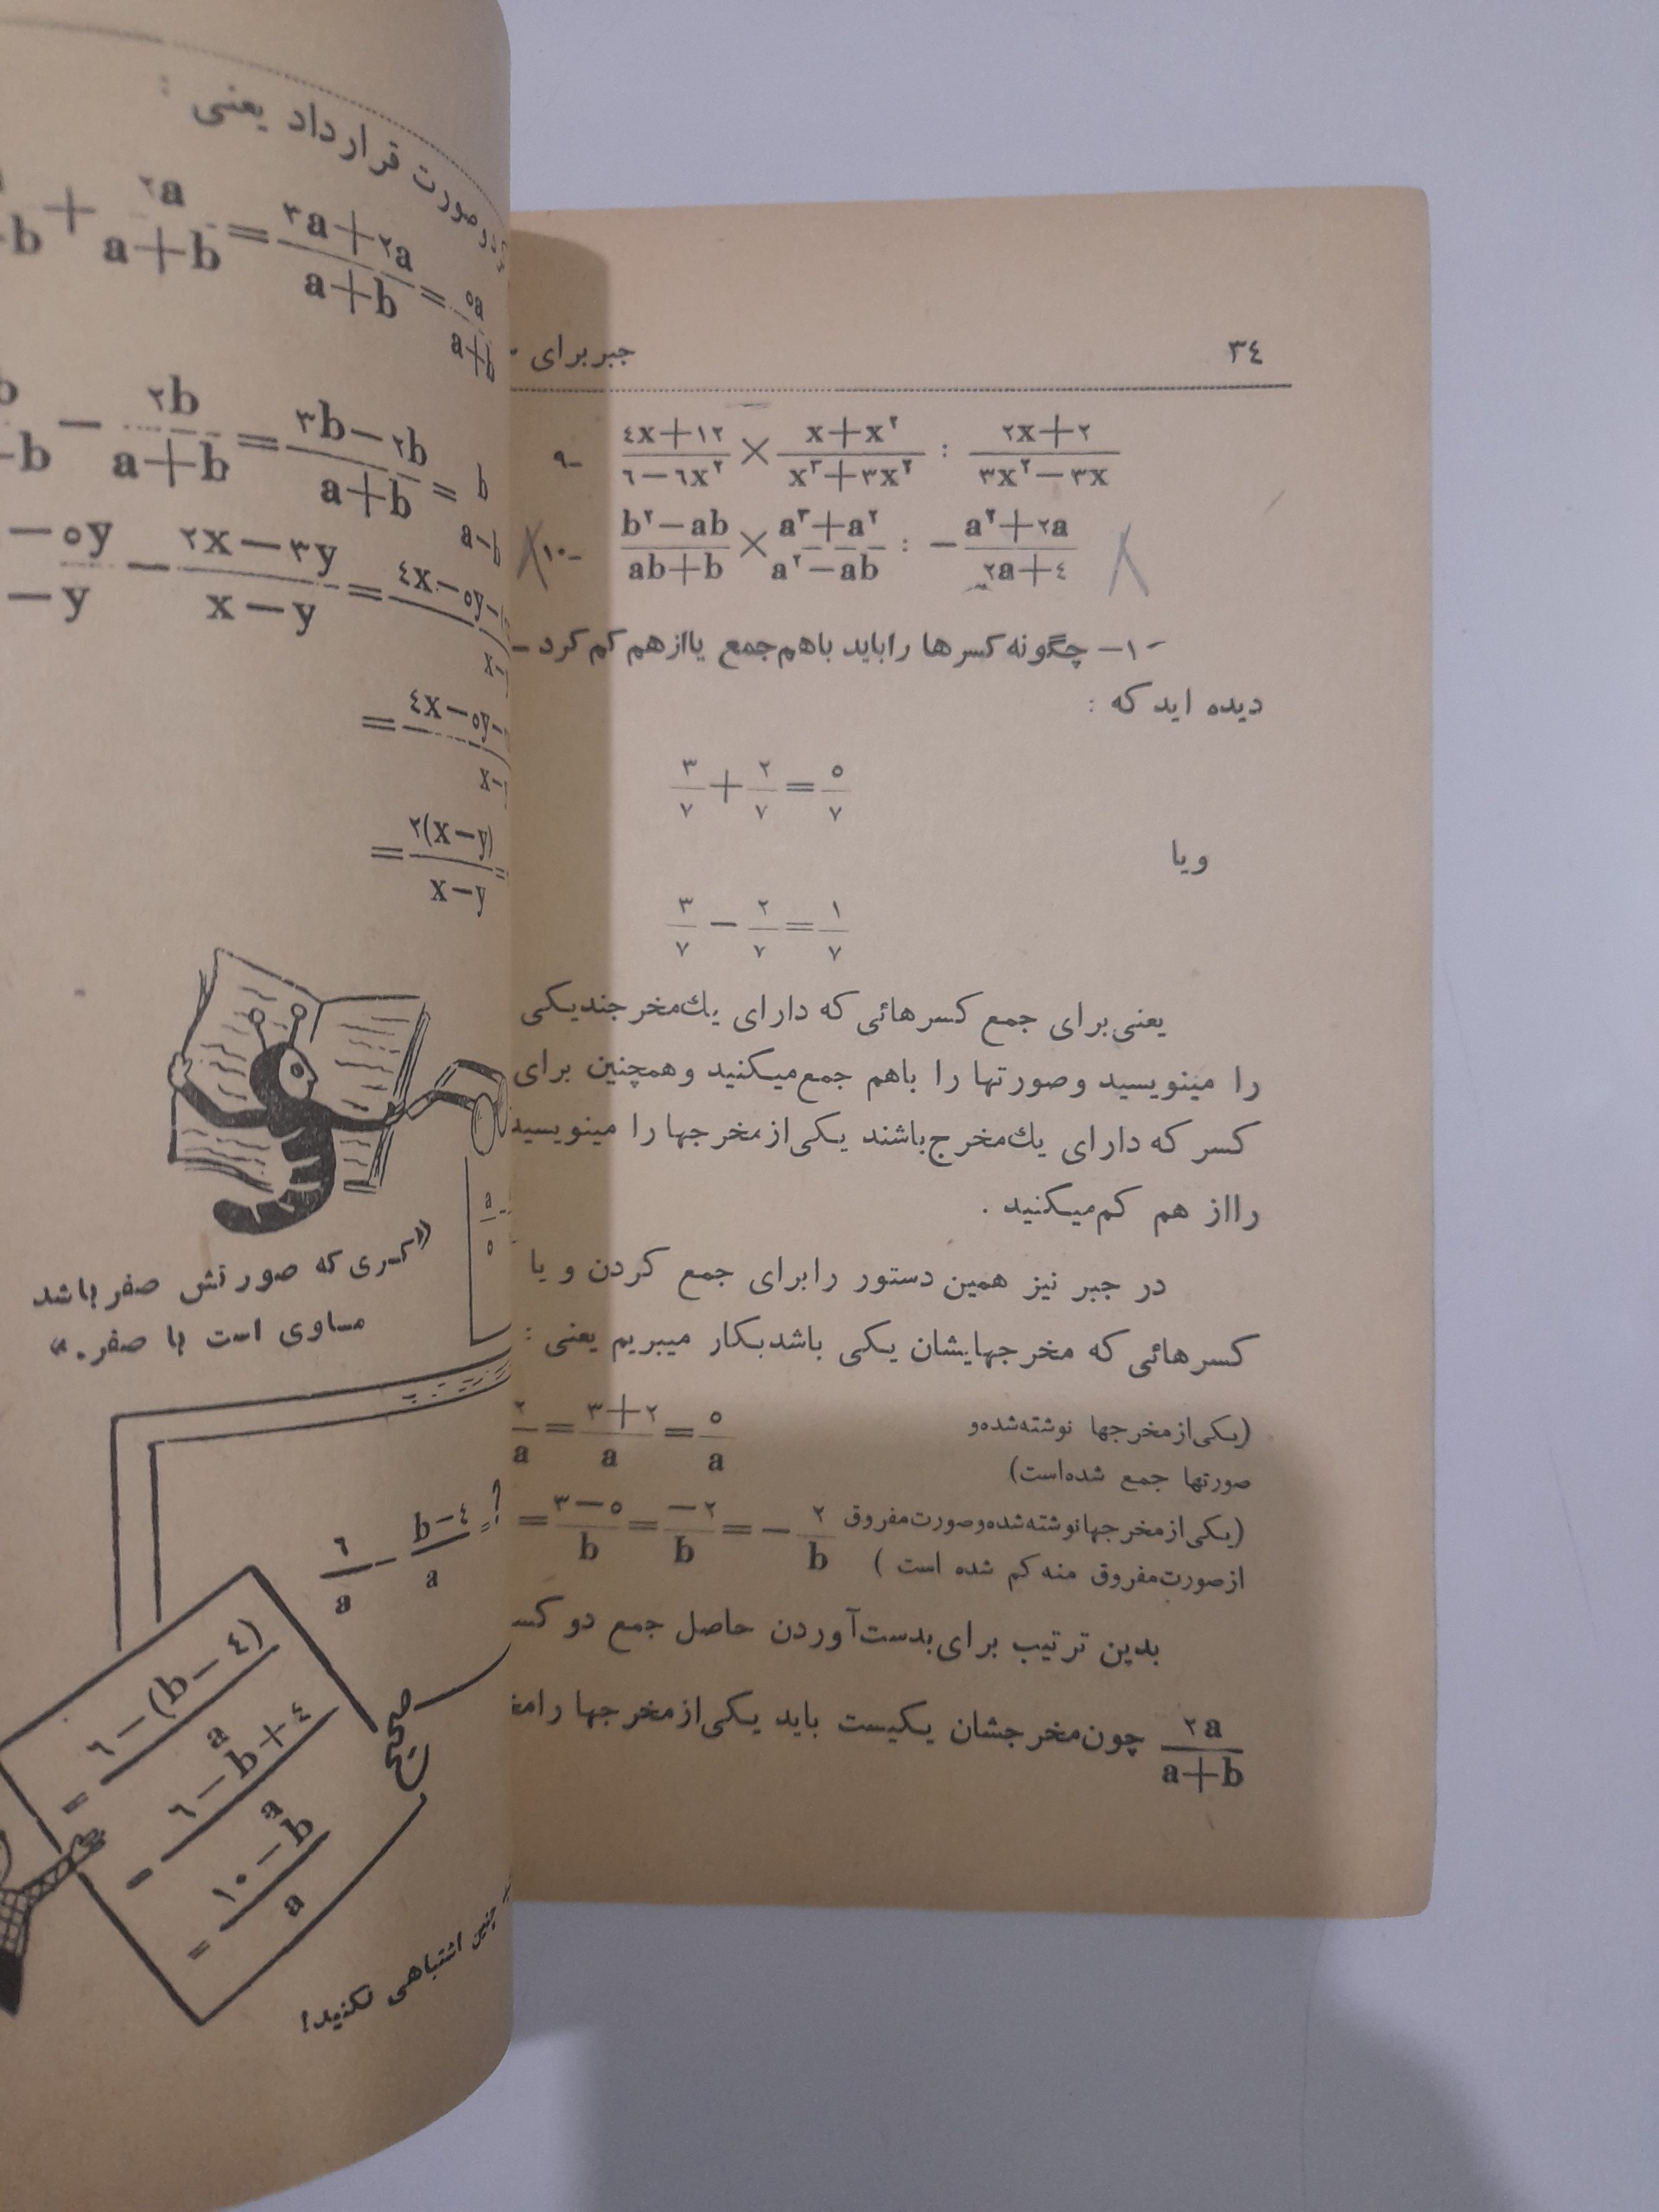 ٣٤
جبر برای
٩- ٤x+١٢/٦-٦x٢ × x+x٢/x٣+٣x٢ : ٢x+٢/٣x٢-٣x
١٠- b٢-ab/ab+b × a٣+a٢/a٢-ab : - a٢+٢a/٢a+٤
١- چگونه کسرها را باید باهم جمع یا از هم کم کرد -
دیده اید که :
٣/٧ + ٢/٧ = ٥/٧
و یا
٣/٧ - ٢/٧ = ١/٧
یعنی برای جمع کسرهائی که دارای یك مخرجند یکی
را مینویسید و صورتها را باهم جمع میکنید و همچنین برای
کسر که دارای یك مخرج باشند یکی از مخرجها را مینویسید
را از هم کم میکنید .
در جبر نیز همین دستور را برای جمع کردن و یا
کسرهائی که مخرجهایشان یکی باشد بکار میبریم یعنی :
٢/a = ٣+٢/a = ٥/a (یکی از مخرجها نوشته شده و
صورتها جمع شده است)
= ٣-٥/b = -٢/b = - ٢/b (یکی از مخرجها نوشته شده و صورت مفروق
از صورت مفروق منه کم شده است )
بدین ترتیب برای بدست آوردن حاصل جمع دو
٢a/a+b چون مخرجشان یکیست باید یکی از مخرجها را
صورت قرار داد یعنی :
+ ٢a/a+b = ٣a+٢a/a+b = ٥a/a+b
- ٢b/a+b = ٣b-٢b/a+b = b/a-b
-٥y/-y - ٢x-٣y/x-y = ٤x-٥y-
= ٤x-٥y-
= ٢(x-y)/x-y =
«کسری که صورتش صفر باشد
مساوی است با صفر.»
٦/a - b-٤/a = ?
= ٦-(b-٤)/a
= ٦-b+٤/a
= ١٠-b/a
صحیح
چنین اشتباهی نکنید!